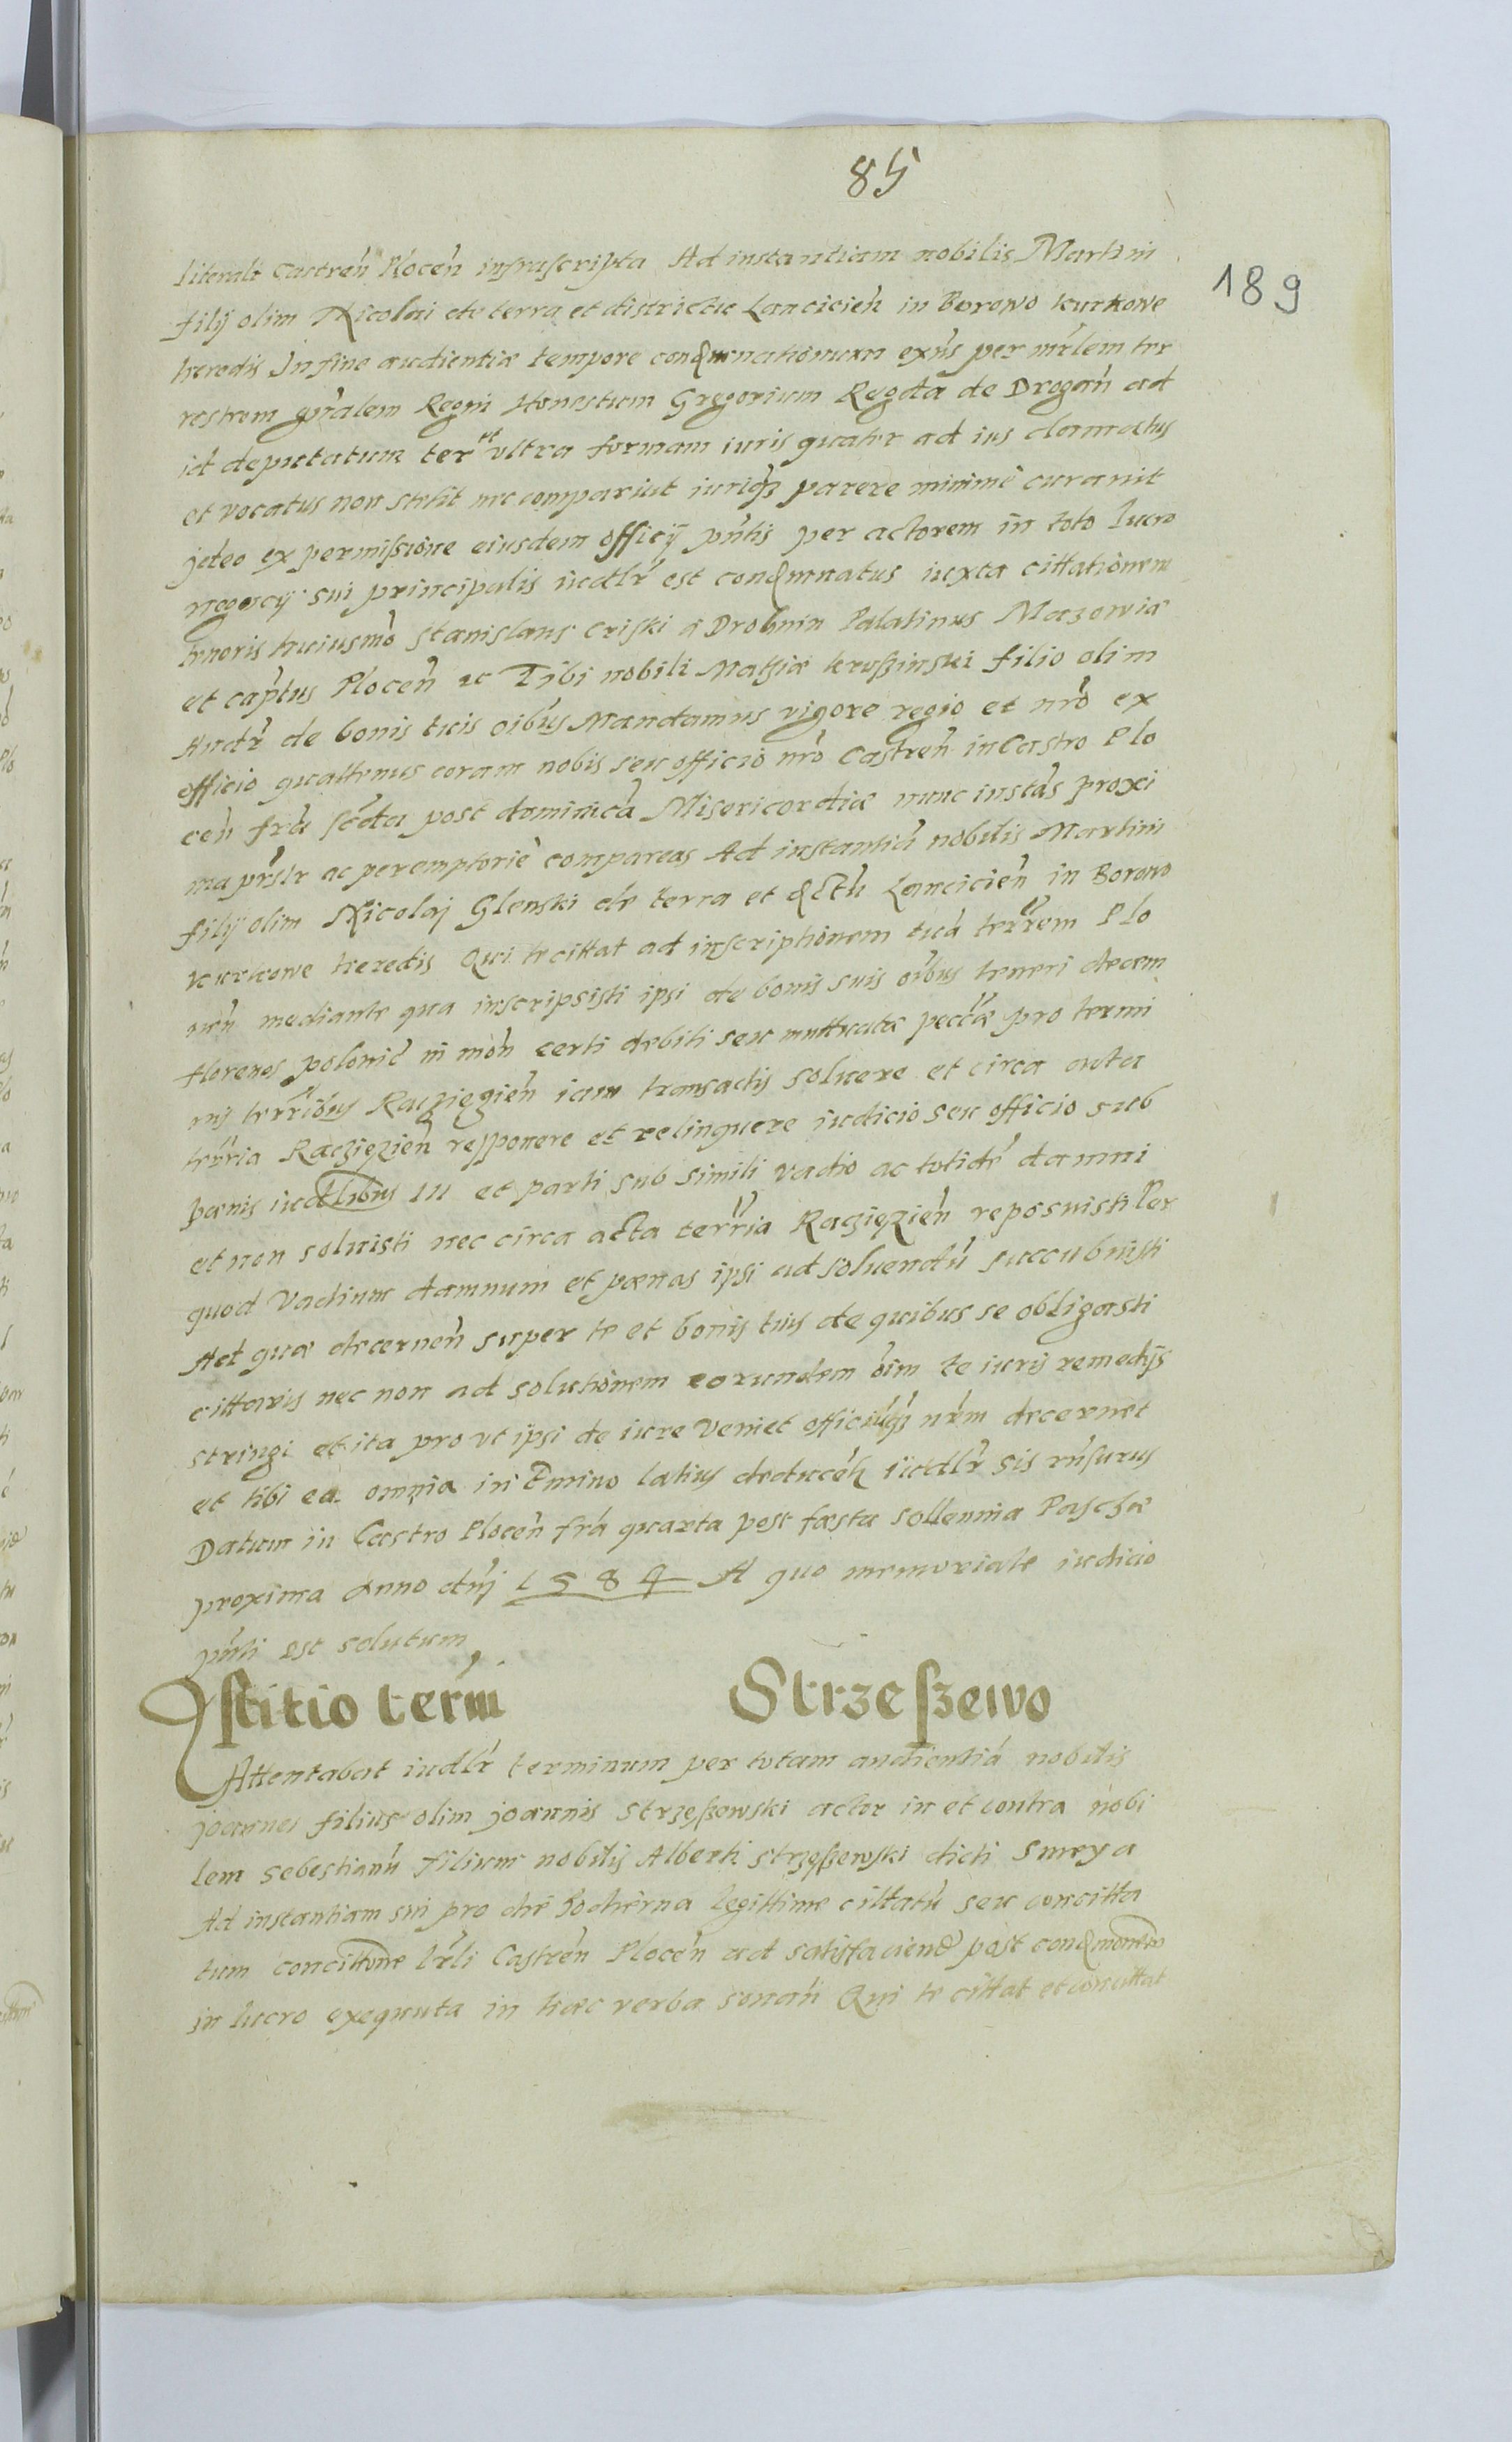 85
189
literali Castreń Płoceń infrascripta Ad instantiam nobilis Martini
filij olim Nicolai de terra et districtu Lancicień in Borowo kurkowe
heredis In fine audientiæ tempore condemnationum exńs per mr̃lem ter
restrem gn̄ralem Regni Honestum Gregorium Rogala de Drogań ad
id deputatum ter et vltra formam iuris quater ad ius clamatus
et vocatus non stetit nec comparuit iuriq́ȝ parere minimè curauit
ideo ex permissione eiusdem officij pńtis per actorem in toto lucro
negocij sui principalis iudlr̃ est condemnatus iuxta cittationem
tenoris huiusmo̊ Stanislaus Criski à Drobnin Palatinus Mazowiæ
et cap̃tus Płoceń ac Tibi nobili Mathiæ kroszinski filio olim
Andr̃ de bonis tuis oib́us Mandamus vigore regio et nr̃o ex
officio quattenus coram nobis seu officio nr̃o Castreń in Castro Plo
ceń fr̃a scd̃a post dominicā Misericordiæ nunc instās proxi
ma pr̃slr ac peremptoriè compareas Ad instantiā nobilis Martini
filij olim Nicolaj Glenski de terra et dctū Lancicień in Borowo
kurkowe heredis Qui te cittat ad inscriptionem tuā terr̃em Plo
neń mediante qua inscripsisti ipsi de bonis suis oib́us teneri decem
florenos polonic̃ in moń certi debiti seu muttuatæ pecc̃æ pro termi
nis terr̃ib́us Raczięzień iam transactis soluere et circa acta
terr̃ria Raczięzień repponere et relinquere iudicio seu officio sub
pœnis iudlibus III et parti sub simili vadio ac totidē damni
et non soluisti nec circa acta terr̃ria Raczięzień reposuisti Per
quod vadium damnum et pœnas ipsi ad soluendū succubuisti
Ad quæ decerneń super te et bonis tuis de quibus se obligasti
cittaris nec non ad solutionem eorundem oīm te iuris remedijs
stringi et ita pro vt ipsi de iure veniet officiuq́ȝ nr̃m decernet
et tibi ea omnia in Tmino latius deduceń iudlr̃ sis rńsurus
Datum in Castro Płoceń fr̃a quarta post festa sollennia Paschæ
proxima Anno dnj̃ 1584 A quo memoriale iudicio
pńti est solutum
Astitio term̃ Strzeszewo
Attentabat iudlr̃ terminum per totam audientiā nobilis
joannes filius olim joannis Strzeszewski actor in et contra nobi
lem Sebestianū filium nobilis Alberti Strzeszewski dicti Smeya
Ad instantiam sui pro die hodierna legittime cittatū seu concitta
tum concittone lr̃li Castreń Płoceń ad satisfaciend̃ post condemnonem
in lucro exequuta in hæc verba sonań Qui te cittat et concittat